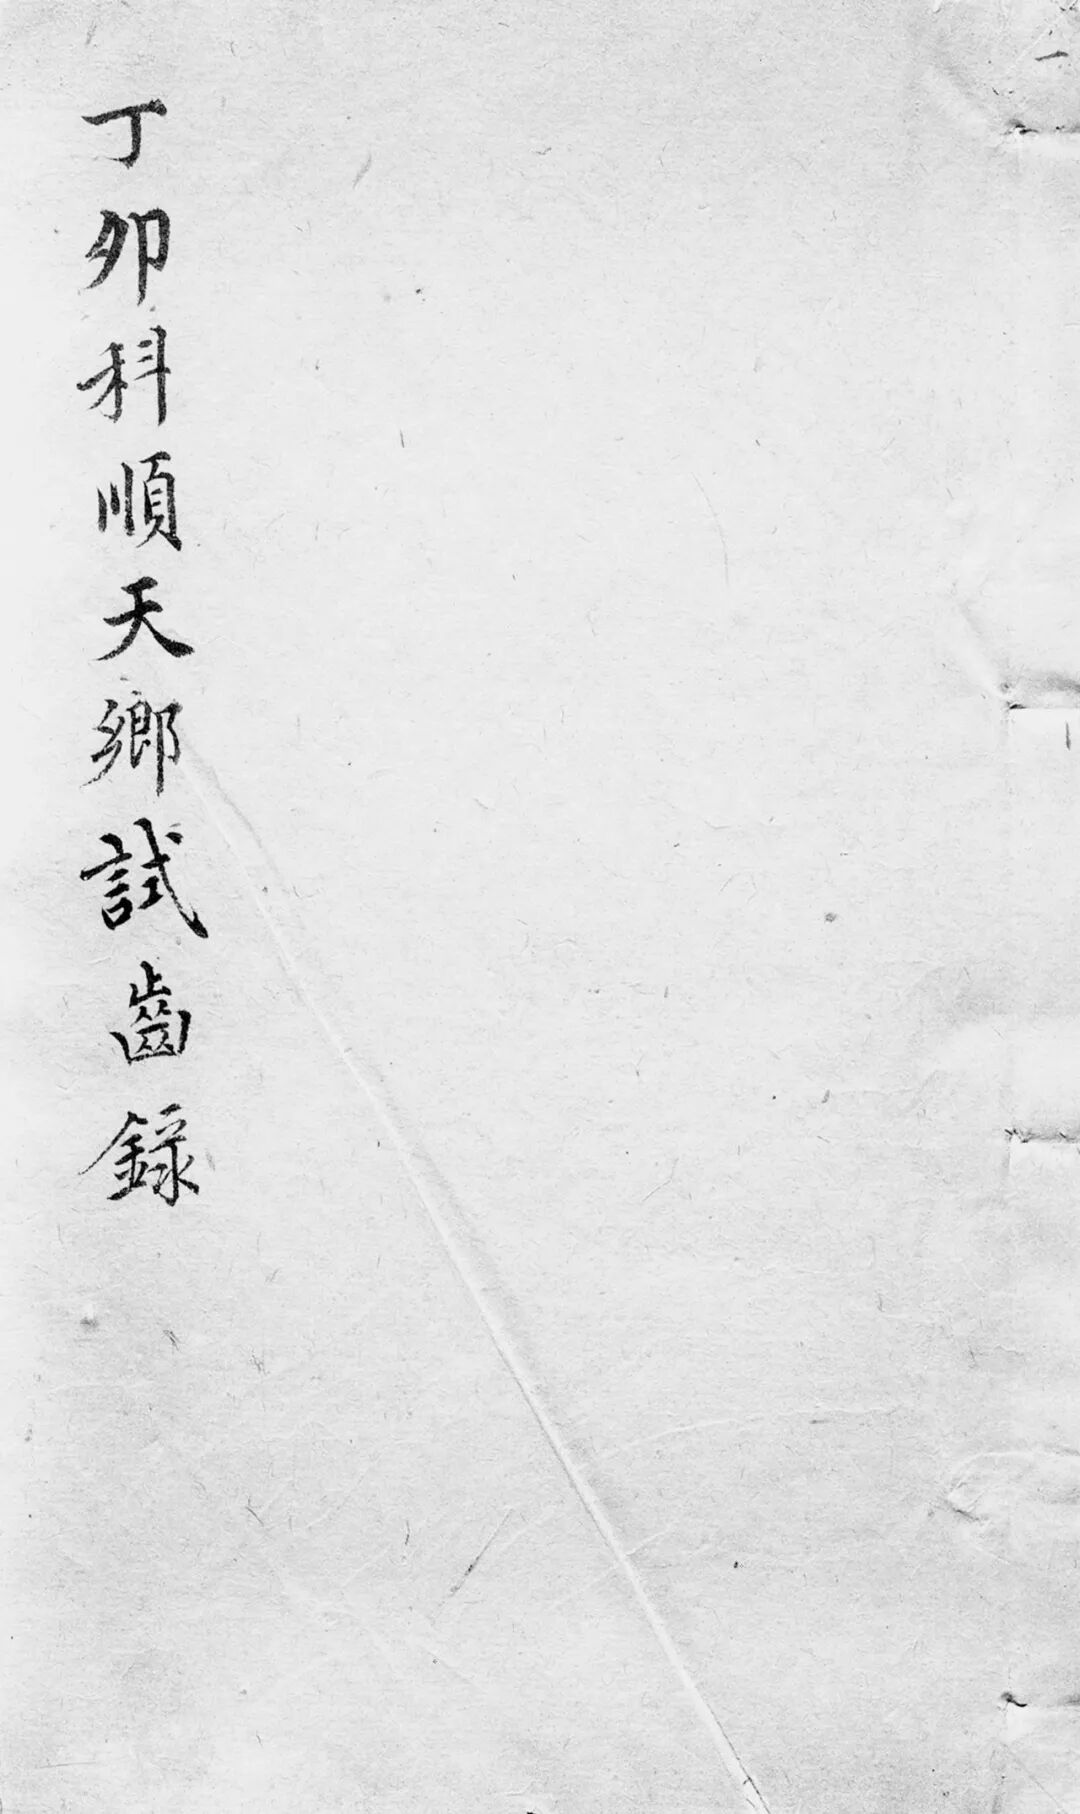 丁卯科順天鄉試齒錄